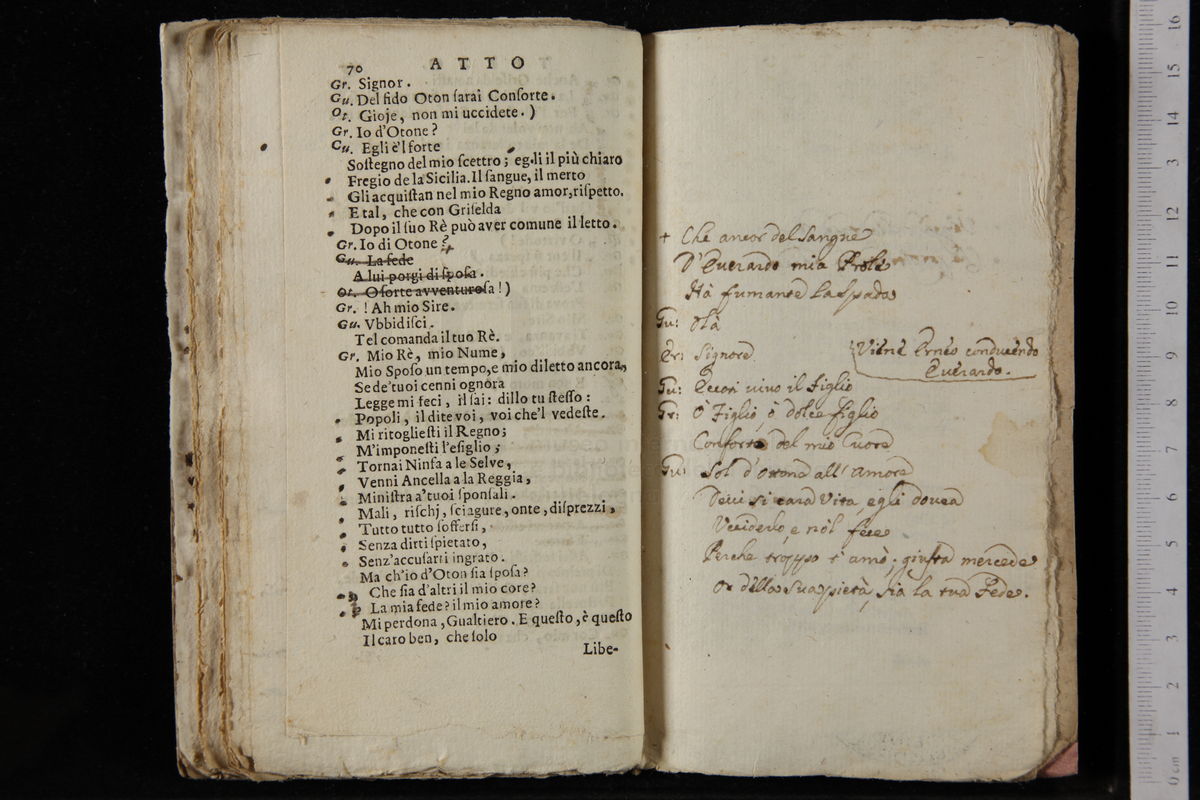 70 ATTO
Gr. Signor.
Gu. Del fido Oton ſarai Conſorte.
Ot. Gioje, non mi uccidete. )
Gr. Io d'Otone?
Gu. Egli è'l forte
Soſtegno del mio ſcettro; egli il più chiaro
Fregio de la Sicilia. Il ſangue, il merto
Gli acquiſtan nel mio Regno amor, riſpetto.
E tal, che con Griſelda
Dopo il ſuo Rè può aver comune il letto.
Gr. Io di Otone? +
Gu. La fede
A lui porgi di ſpoſa.
Ot. O ſorte avventuroſa!)
Gr. ! Ah mio Sire.
Gu. Vbbidiſci.
Tel comanda il tuo Rè.
Gr. Mio Rè, mio Nume,
Mio Spoſo un tempo, e mio diletto ancora,
Se de' tuoi cenni ognora
Legge mi feci, il ſai: dillo tu ſteſſo:
Popoli, il dite voi, voi che'l vedeſte.
Mi ritoglieſti il Regno;
M'imponeſti l'eſiglio;
Tornai Ninfa a le Selve,
Venni Ancella a la Reggia,
Miniſtra a' tuoi ſponſali.
Mali, riſchj, ſciagure, onte, diſprezzi,
Tutto tutto ſofferſi,
Senza dirti ſpietato,
Senz'accuſarti ingrato.
Ma ch'io d'Oton ſia ſpoſa?
Che ſia d'altri il mio core?
La mia fede? il mio amore?
Mi perdona, Gualtiero. E queſto, è queſto
Il caro ben, che ſolo
Libe-
+ Che ancor del Sangue
D'Everardo mia Prole
Hà fumante la Spada
Gu: Olà
Er: Signore
Viene Erneo conducendo
Everardo.
Gu: Eccoti vivo il Figlio
Gr: Ò Figlio, ò dolce figlio
Conforto del mio Cuore
Gu: Sol d'Ottone all'amore
Devi sì cara Vita, egli dovea
Ucciderlo, e nol fece
Perche troppo t'amò; giusta mercede
Or della sua pietà, sia la tua Fede.